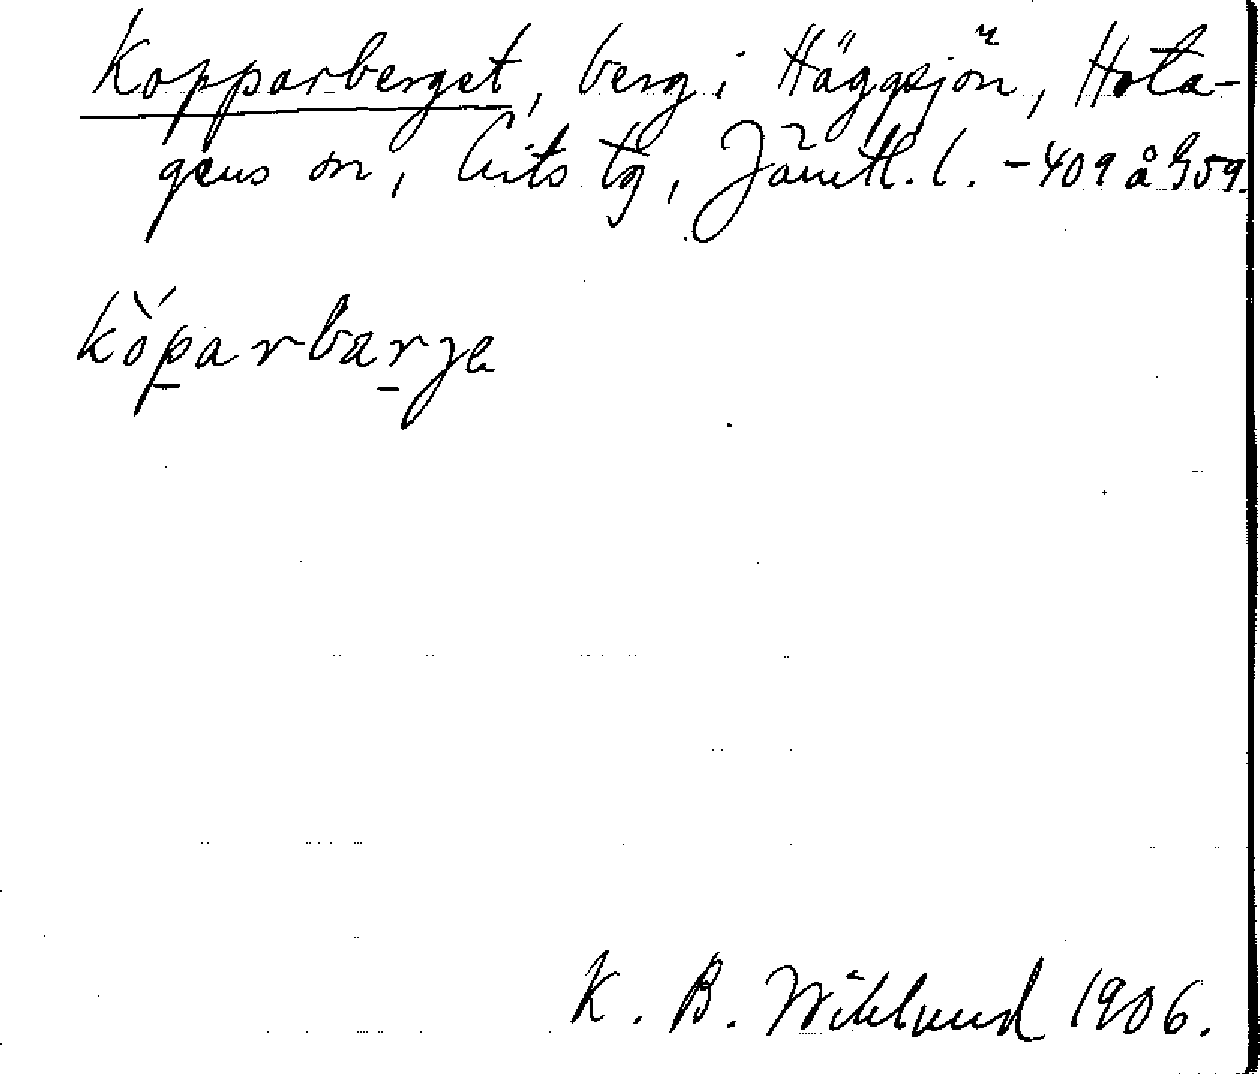 Kopparberget, berg i Häggsjön, Hota-
gens sn, Lits tg, Jämtl. l. - 409 å G59.
kŏ́parbarje
K. B. Wiklund 1906.